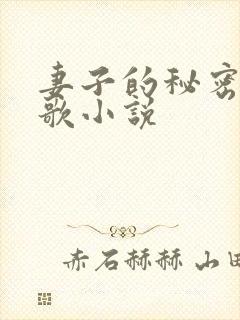 妻子的秘密
歌小说
赤石赫赫 山田